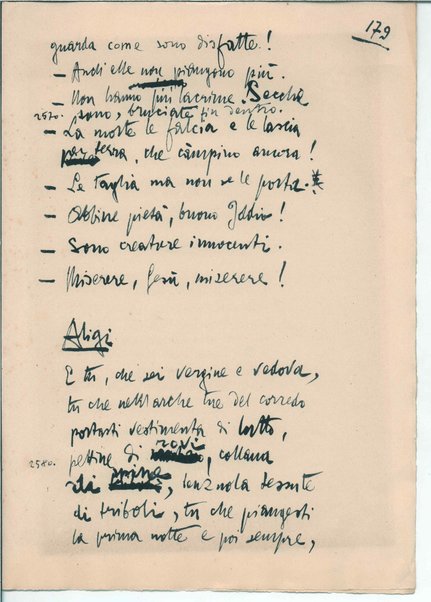 179
guarda come sono disfatte!
– Anch'elle non piangono più.
– Non hanno più lacrime. Secche
2570. sono, bruciate fin dentro.
– La morte le falcia e le lascia
per terra, che càmpino ancora!
– Le taglia ma non se le porta.
– Abbine pietà, buono Iddio!
– Sono creature innocenti.
– Miserere, Gesù, miserere!
Aligi
E tu, che sei vergine e vedova,
tu che nell'arche tue del corredo
portasti vestimenta di lutto,
2580. pettine di rovi, collana
di spine, lenzuola tessute
di triboli, tu che piangesti
la prima notte e poi sempre,